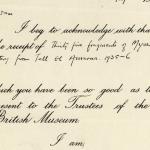 I beg to acknowledge with than
he receipt of Thirty five fragments of Myce
from Tell El Amarna. 1935-6
hich you have been so good as to
resent to the Trustees of the
British Museum
I am,